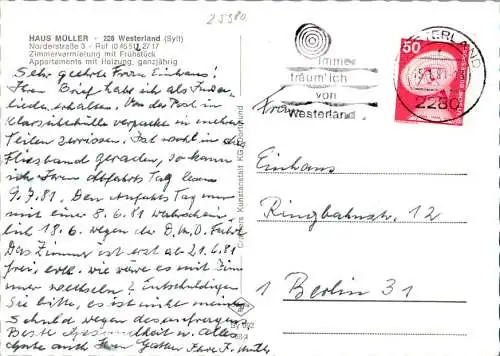 25980
HAUS MÜLLER · 228 Westerland (Sylt)
Norderstraße 3 - Ruf (04651) 2717
Zimmervermietung mit Frühstück
Appartements mit Heizung, ganzjährig
Sehr geehrte Frau Einhaus!
Ihren Brief habe ich als
erhalten. Von der Post in
Klarsichthülle verpackt in mehrere
Teilen zerrissen. Ist wohl in das
Fliesband geraden, so kann
ich Ihren Abfahrts Tag lesen
9.7.81. Den Anfahrts Tag nur
mit einer 8.6.81 wahrschein,
lich 18.6. wegen der
Das Zimmer ist erst ab 21.6.81
frei, evtl. wie wäre es mit Zim
mer wechseln? Entschuldigen
Sie bitte, es ist nicht meine
Schuld wegen des anfragen.
Beste Gesundheit u. alles
Gute auch Ihren Gatten Ihre F. Müller
Kunstanstalt KG, Dortmund
immer
träum' ich
von
Westerland
WESTERLAND
2280
50
Frau
Einhaus
Ringbahnstr. 12
1 Berlin 31